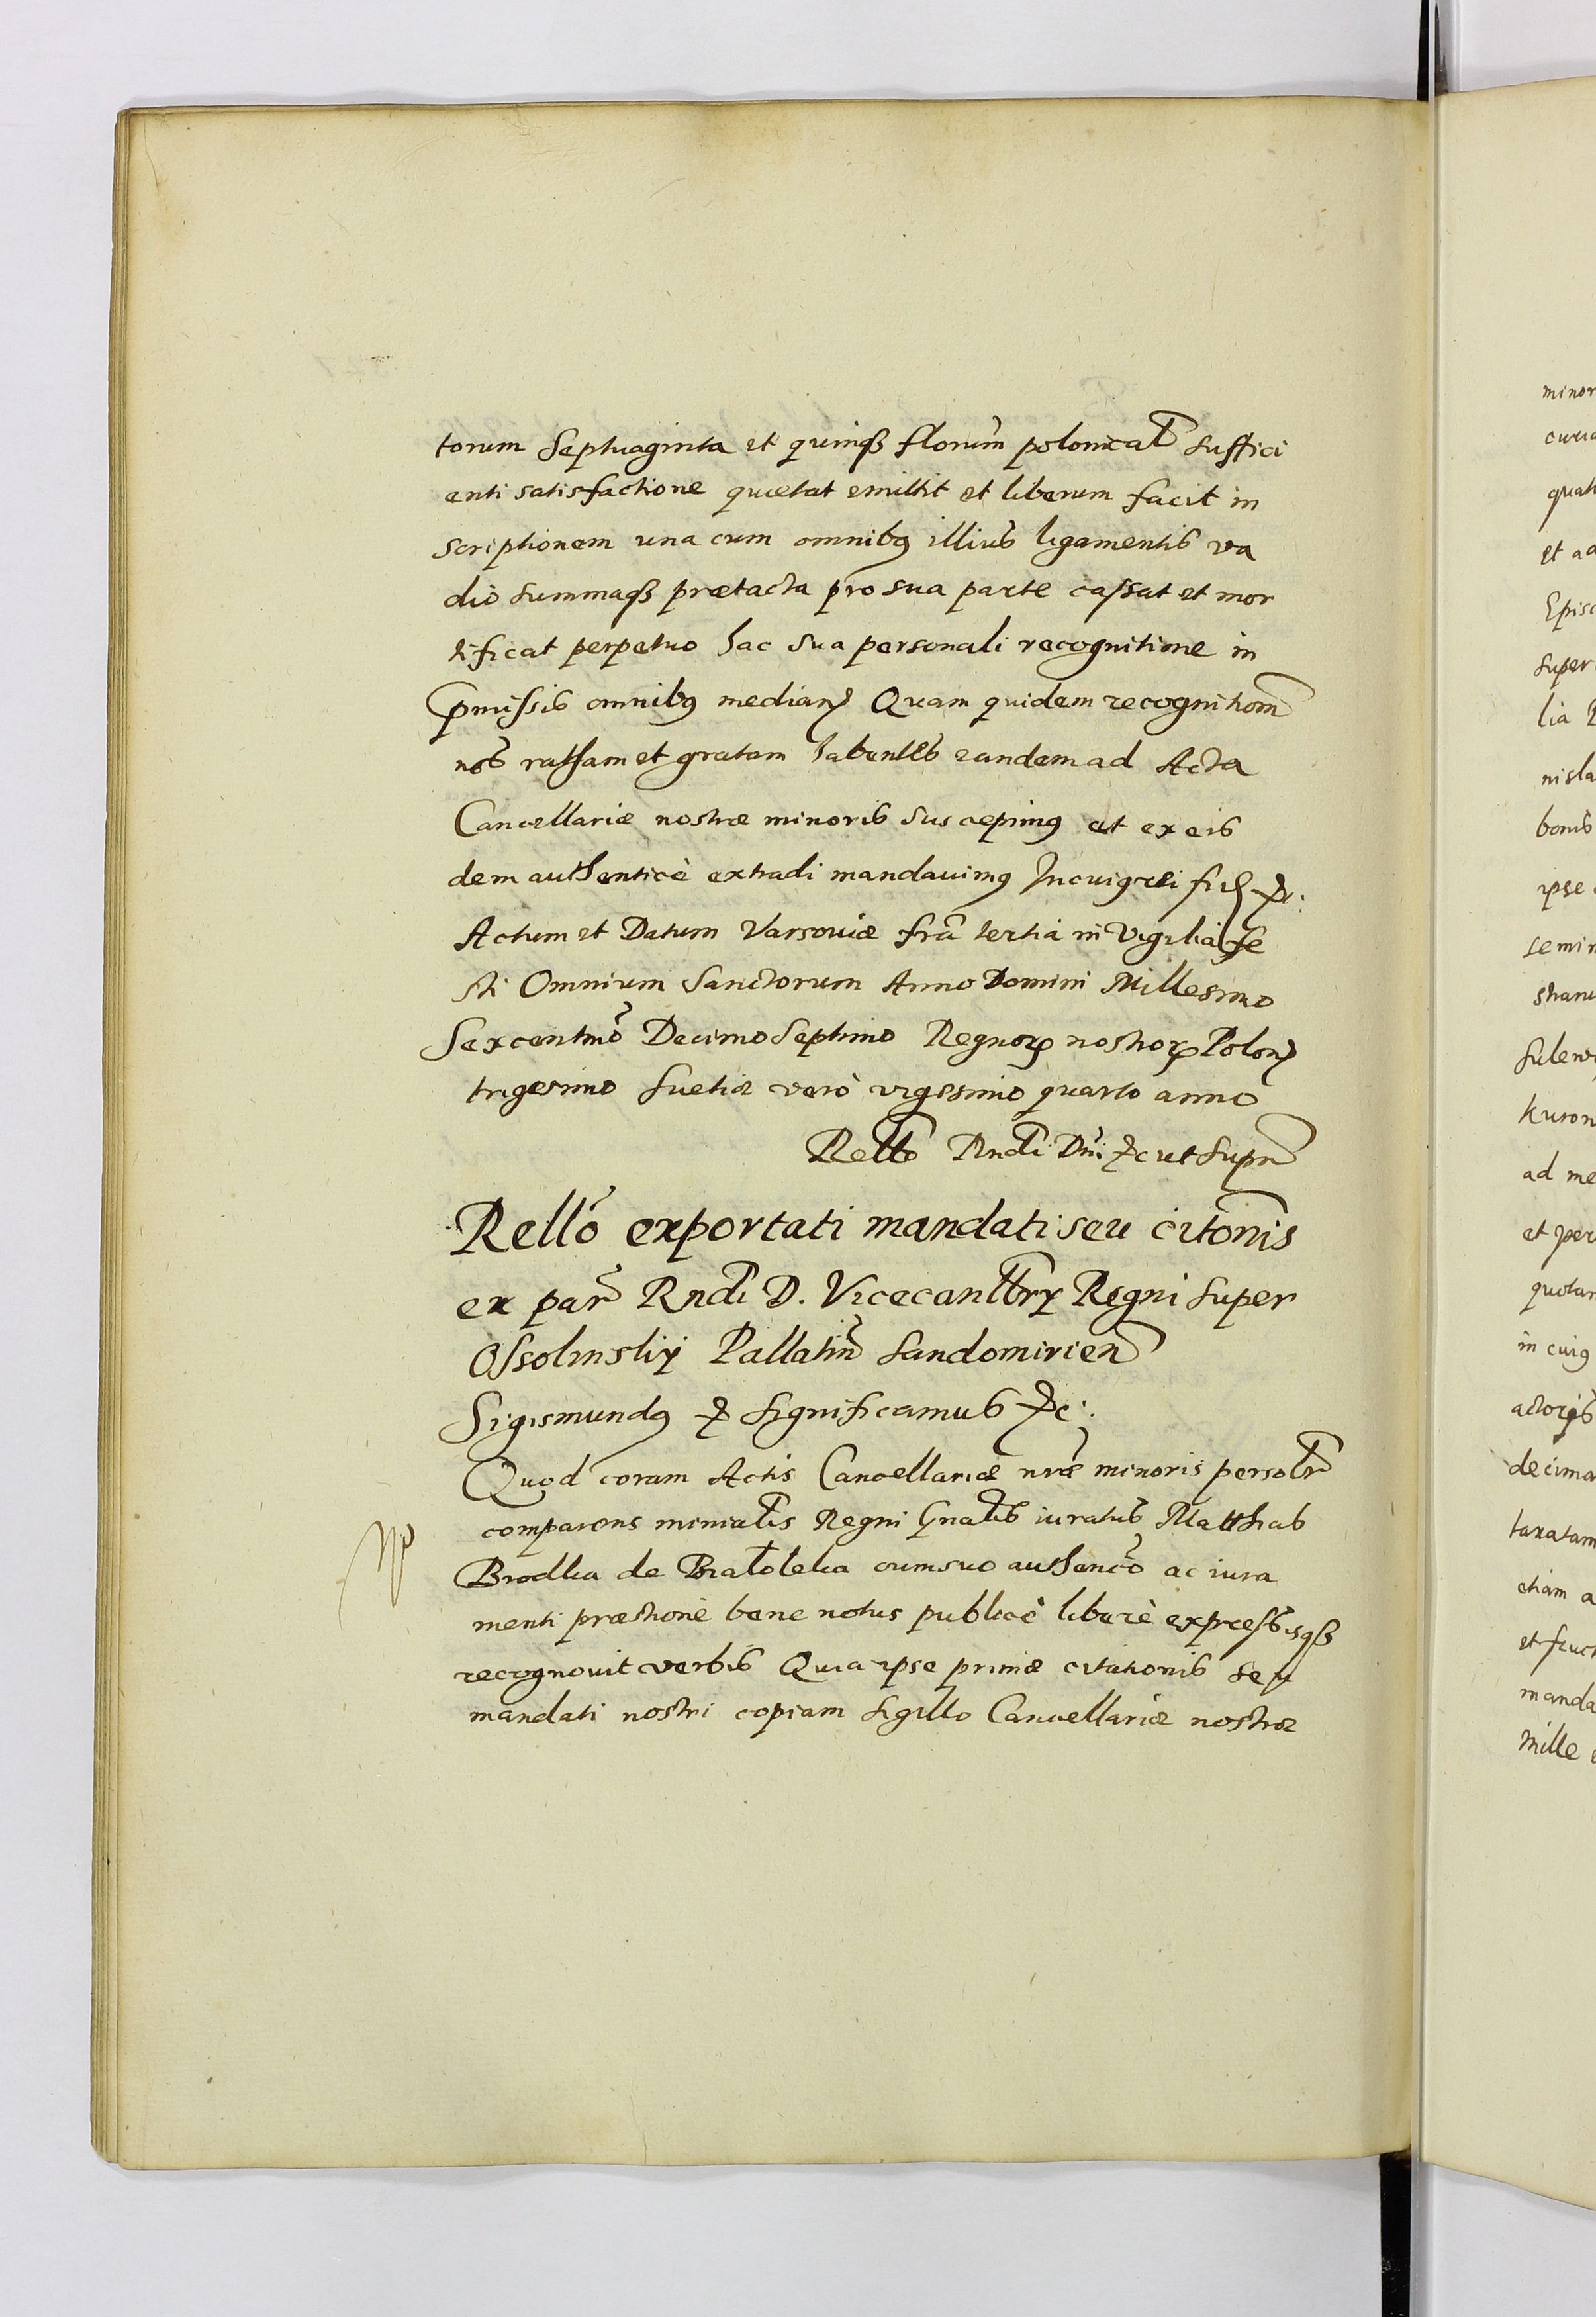 torum Septuaginta et quinqȝ florum̃ polonicaľ suffici
enti satisfactione quietat emittit et liberum facit in
scriptionem una cum omnibꝰ illius ligamentis va
dio summaqȝ prætacta pro sua parte cassat et mor
tificat perpetuo hac sua personali recognitione in
p̃missis omnibꝰ median̄ Quam quidem recognitiom̃
nos ratham et gratam habentes eandem ad Acta
Cancellariæ nostræ minoris suscepimꝰ et ex eis
dem authenticè extradi mandavimꝰ In cuiꝰ rei fid̄ &c:
Actum et Datum Varsoviæ fr̃a tertia in Vigilia fe
sti Omnium Sanctorum Anno Domini Millesimo
Sexcentm̃o Decimo Septimo Regnoꝝ nostroꝝ Polon̄
trigesimo Suetiæ verò vigesimo quarto anno
Rello Rndi Dni &c ut supra
Rello exportati mandati seu citonis
ex par̃ Rndi D. Vicecancellrÿ Regni super
Ossolinskiÿ Pallatin̄ Sandomirien̄
Sigismundꝰ & significamus &c:
Quod coram Actis Cancellariæ nr̃æ minoris personalr̃
comparens minialis Regni Gnalis iuratus Matthias
Brodka de cum suo authenco ac iura
menti præstione bene notus publicè liberè expressisqȝ
recognovit verbis Quia ipse primæ citationis seu
mandati nostri copiam sigillo Cancellariæ nostræ
minor
et ad
Episc
super
lia
nisla
bonis
ipse
semin
ad me
et per
quotan
in cuiꝰ
decima
taxatam
etiam a
et fruct
manda
Mille